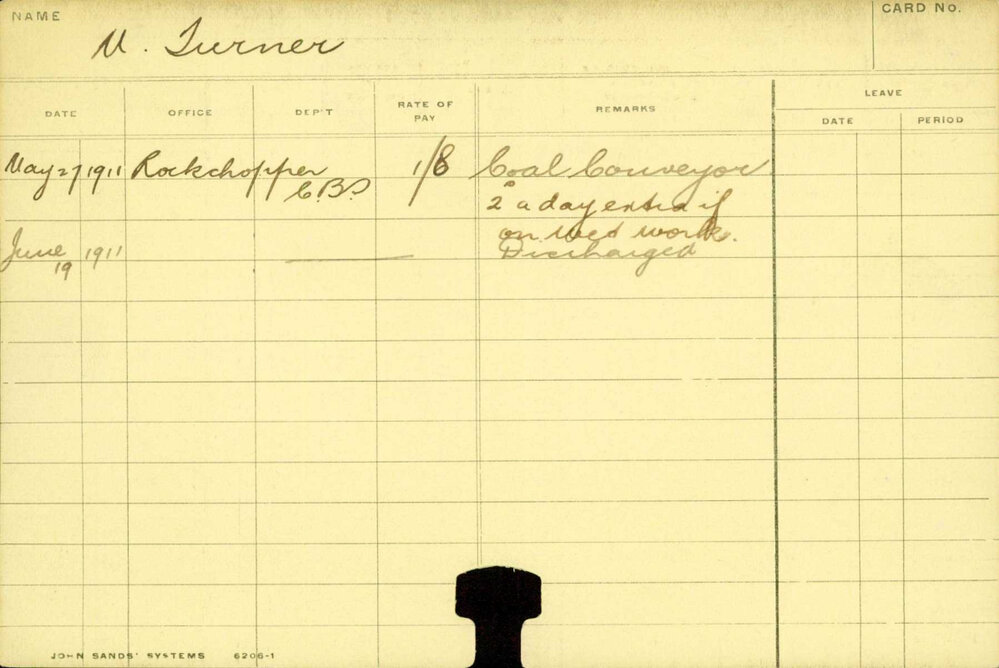 NAME
CARD No.
M. Turner
DATE OFFICE DEP'T RATE OF PAY REMARKS LEAVE
DATE PERIOD
May 27 1911 Rockchopper 1/8 Coal Conveyor
C.B.S 2d a day extra if
on wed work.
June 19 1911 Discharged
JOHN SANDS' SYSTEMS 6206-1